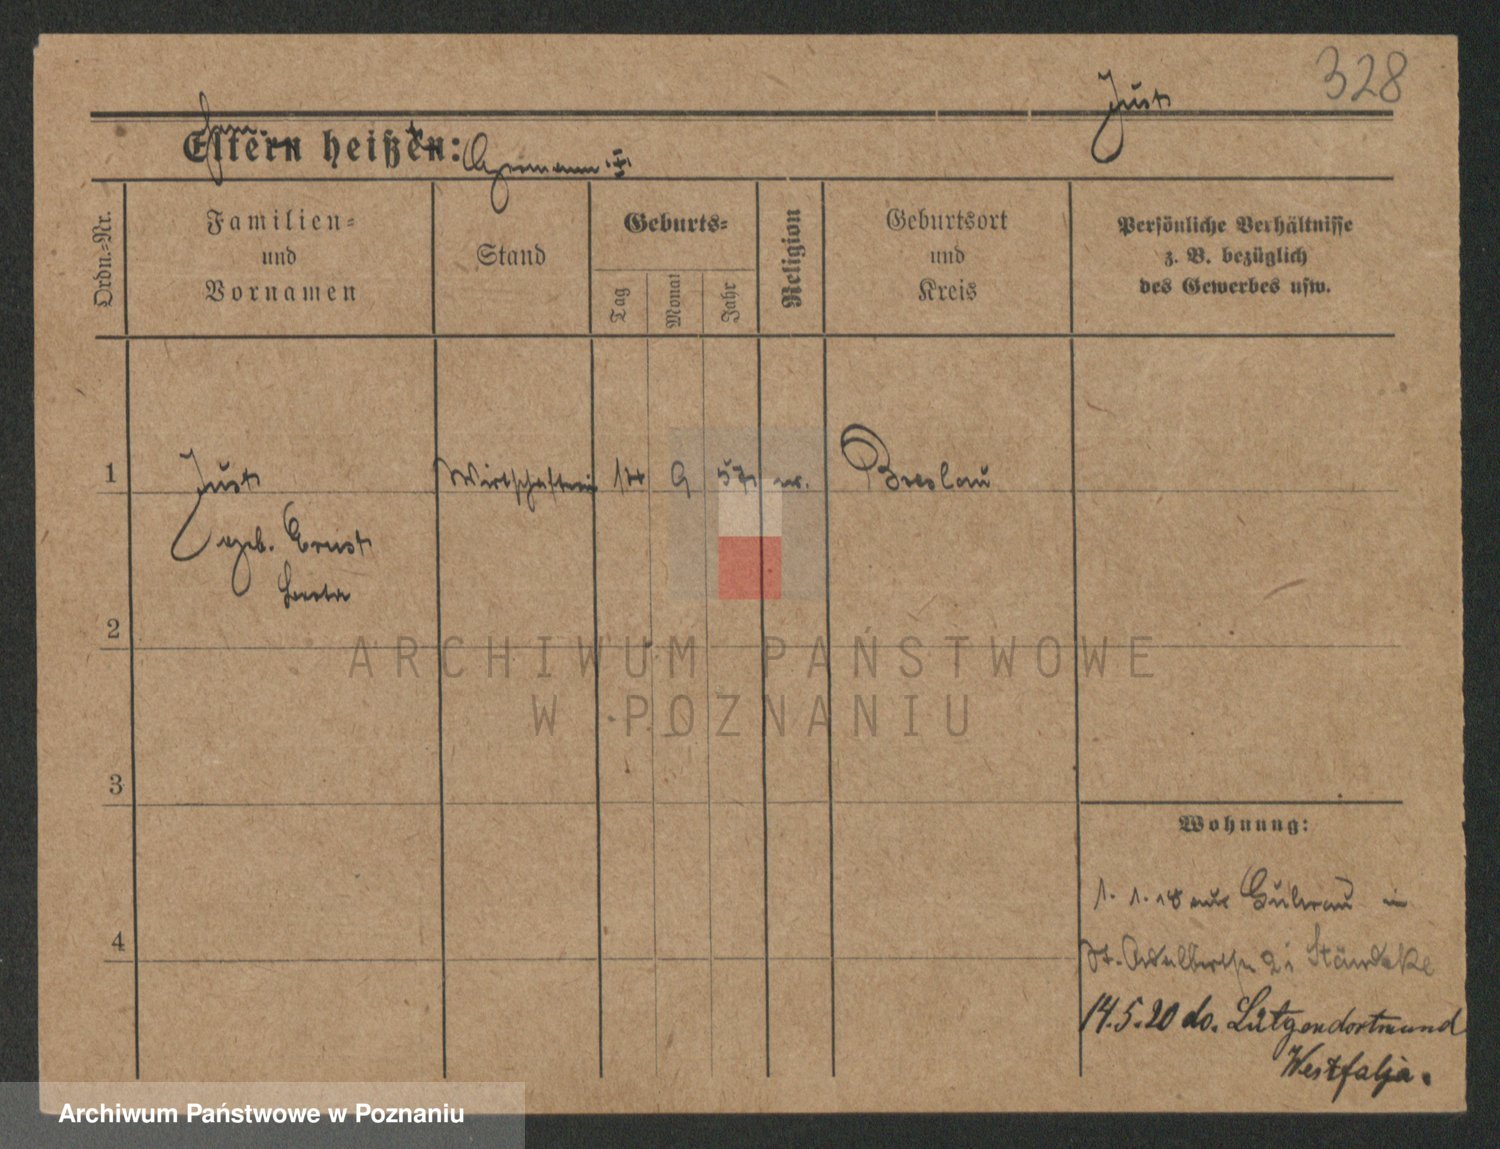 328
Just
Eltern heißen:
Ordn.-Nr.
Familien=
und
Vornamen
Stand
Geburts=
Tag
Monat
Jahr
Religion
Geburtsort
und
Kreis
Persönliche Verhältnisse
z. B. bezüglich
des Gewerbes usw.
1
Just
9
57
Breslau
geb. Ernst
2
3
4
Wohnung:
1. 1. 18 aus Guhrau in
St. Adalbertstr
14.5.20 do. Lütgendortmund
Westfalja.
ARCHIWUM PAŃSTWOWE
W POZNANIU
Archiwum Państwowe w Poznaniu